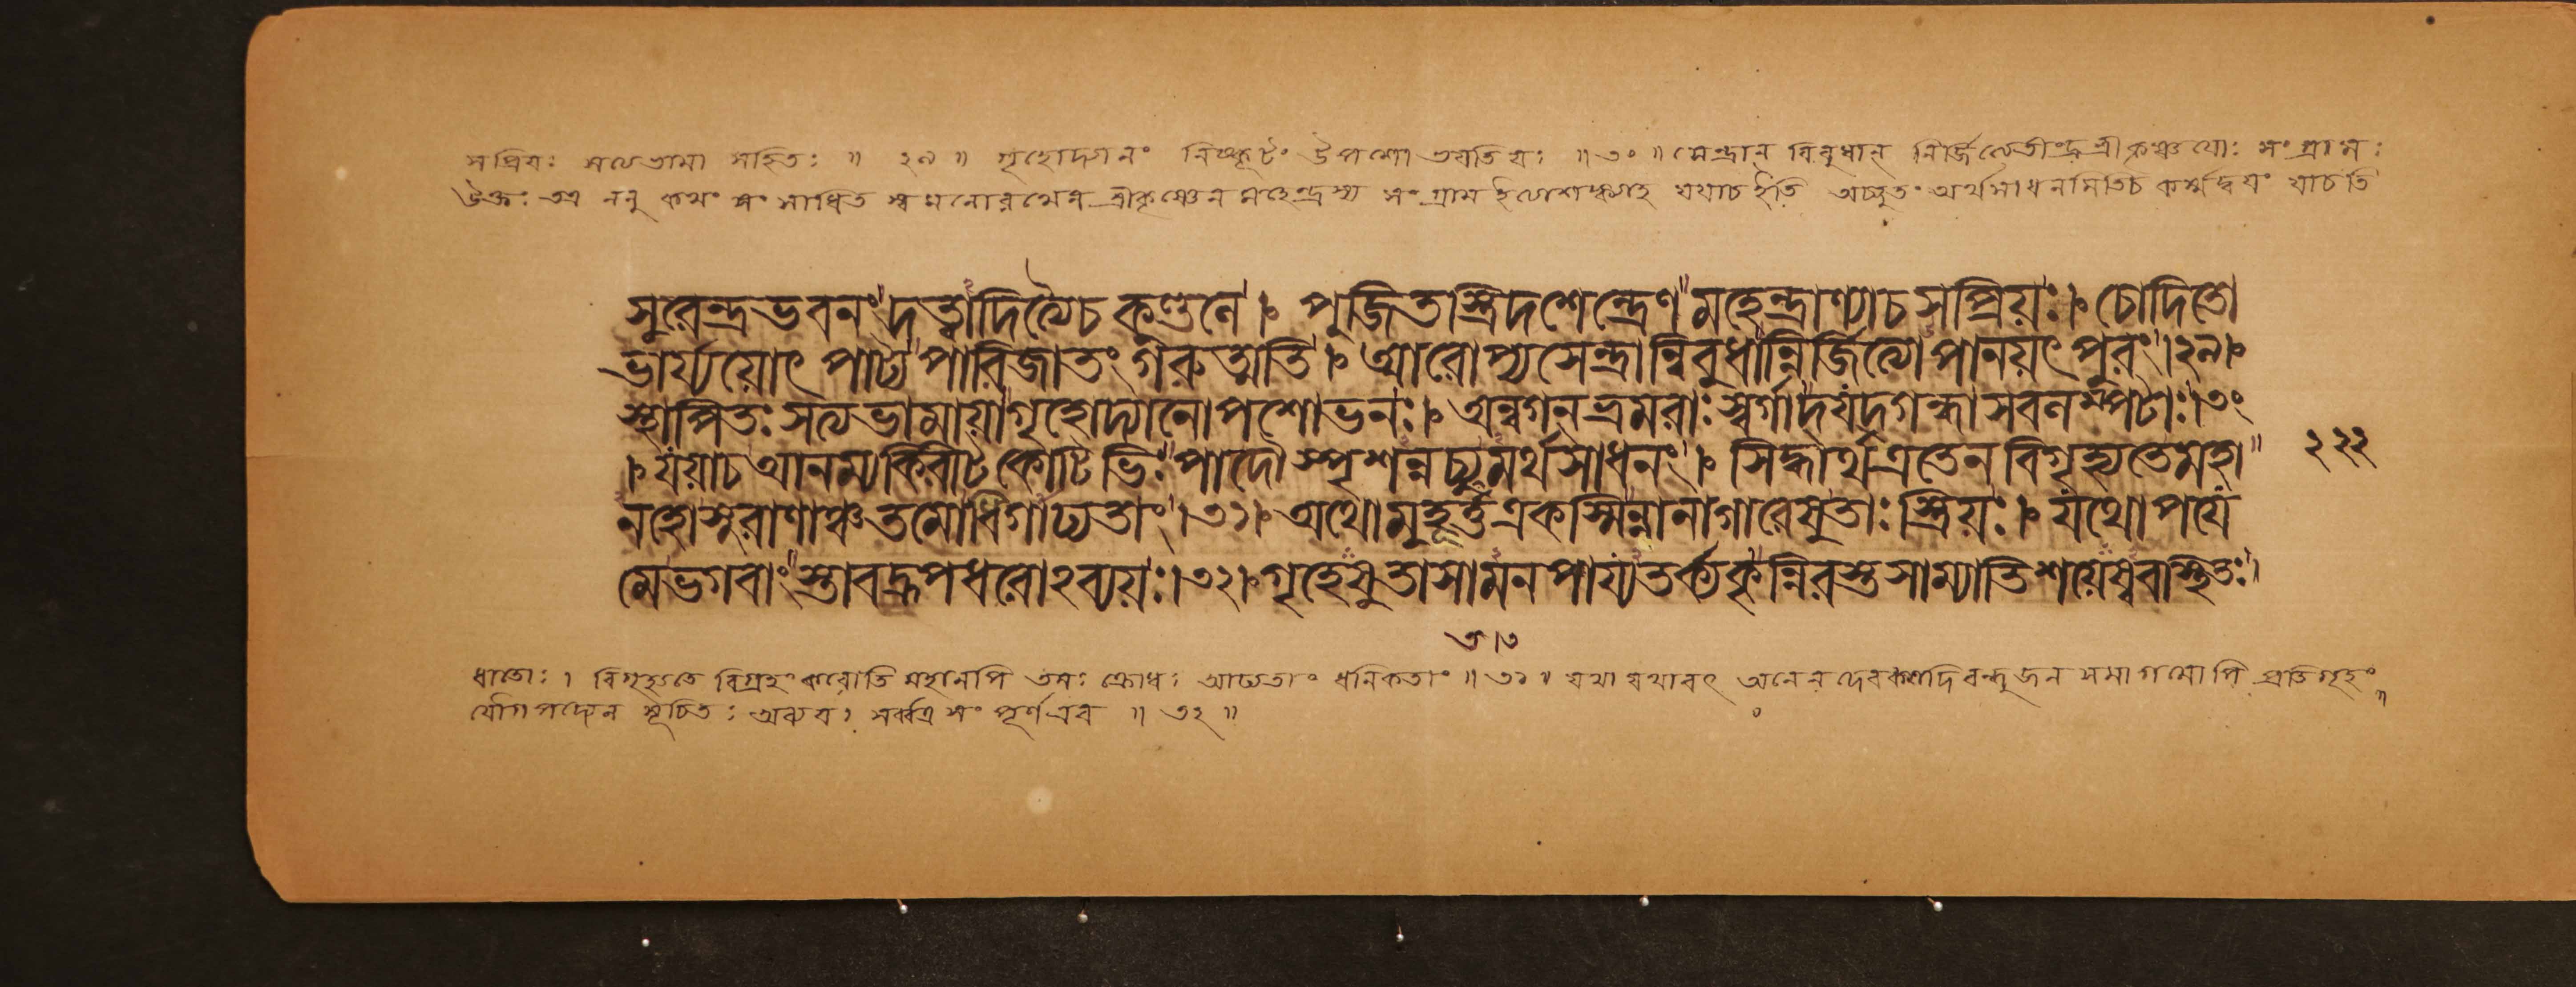 সপ্রিয়ঃ সত্যভামা সহিতঃ ॥ ২৯ ॥ গৃহোদ্যানং নিষ্কূটং উপশোভয়তি যঃ ॥৩০॥ সেন্দ্রান বিবুধান নির্জিত্যেতীন্দ্র শ্রীকৃষ্ণয়োঃ সংগ্রামঃ
উক্তঃ তত্র ননু কথং সংসাধিত স্বমনোরথেন শ্রীকৃষ্ণেন মহেন্দ্রস্য সংগ্রাম যযাচ ইতি অচ্যুতং অর্থসাধনমিতিচ কর্ম্মদ্বয়ং যাচতি
সুরেন্দ্রভবনং দত্বাদিত্যৈচ কুণ্ডলে । পূজিতস্ত্রিদশেন্দ্রেণ মহেন্দ্রাণ্যাচ সপ্রিয়ঃ । চোদিতো
ভার্য্যয়োৎপাট্য পারিজাতং গরুত্মতি । আরোপ্য সেন্দ্রান্বিবুধান্নির্জিত্যোপানয়ৎ পুরং ।২৯।
স্থাপিতঃ সত্যভামায়া গৃহোদ্যানোপশোভনঃ । অন্বগন ভ্রমরাঃ স্বর্গাদ্ যংদগন্ধাসবলম্পটাঃ ।৩০
। যযাচ আনম্য কিরীটকোটিভিঃ পাদৌ স্পৃশন্নচ্যুতমর্থসাধনং । সিদ্ধার্থ এতেন বিগৃহ্যতে মহা
২২২
নহো সুরাণাঞ্চ তমো ধিগাঢ্যতাং ।৩১। অথো মুহূর্ত্ত একস্মিন্নানাগারেষু তাঃ স্ত্রিয়ঃ । যথোপযে
মে ভগবাংস্তাবদ্রূপধরোঽব্যয়ঃ ।৩২। গৃহেষু তাসামনপায্যতর্ক্যকৃন্নিরস্তসাম্যাতিশয়েষ্ববস্থিতঃ
ধাতোঃ । বিগৃহ্যতে বিগ্রহং করোতি মহানপি তমঃ ক্রোধঃ আঢ্যতাং ধনিকতাং ॥ ৩১ ॥ যথা যথাবৎ অনেন দেবক্যাদিবন্ধুজন সমাগমোপি প্রতিগৃহং
যৌগপদ্যেন সূচিতঃ অব্যয়ঃ সর্বত্র সংপূর্ণ এব ॥ ৩২ ॥